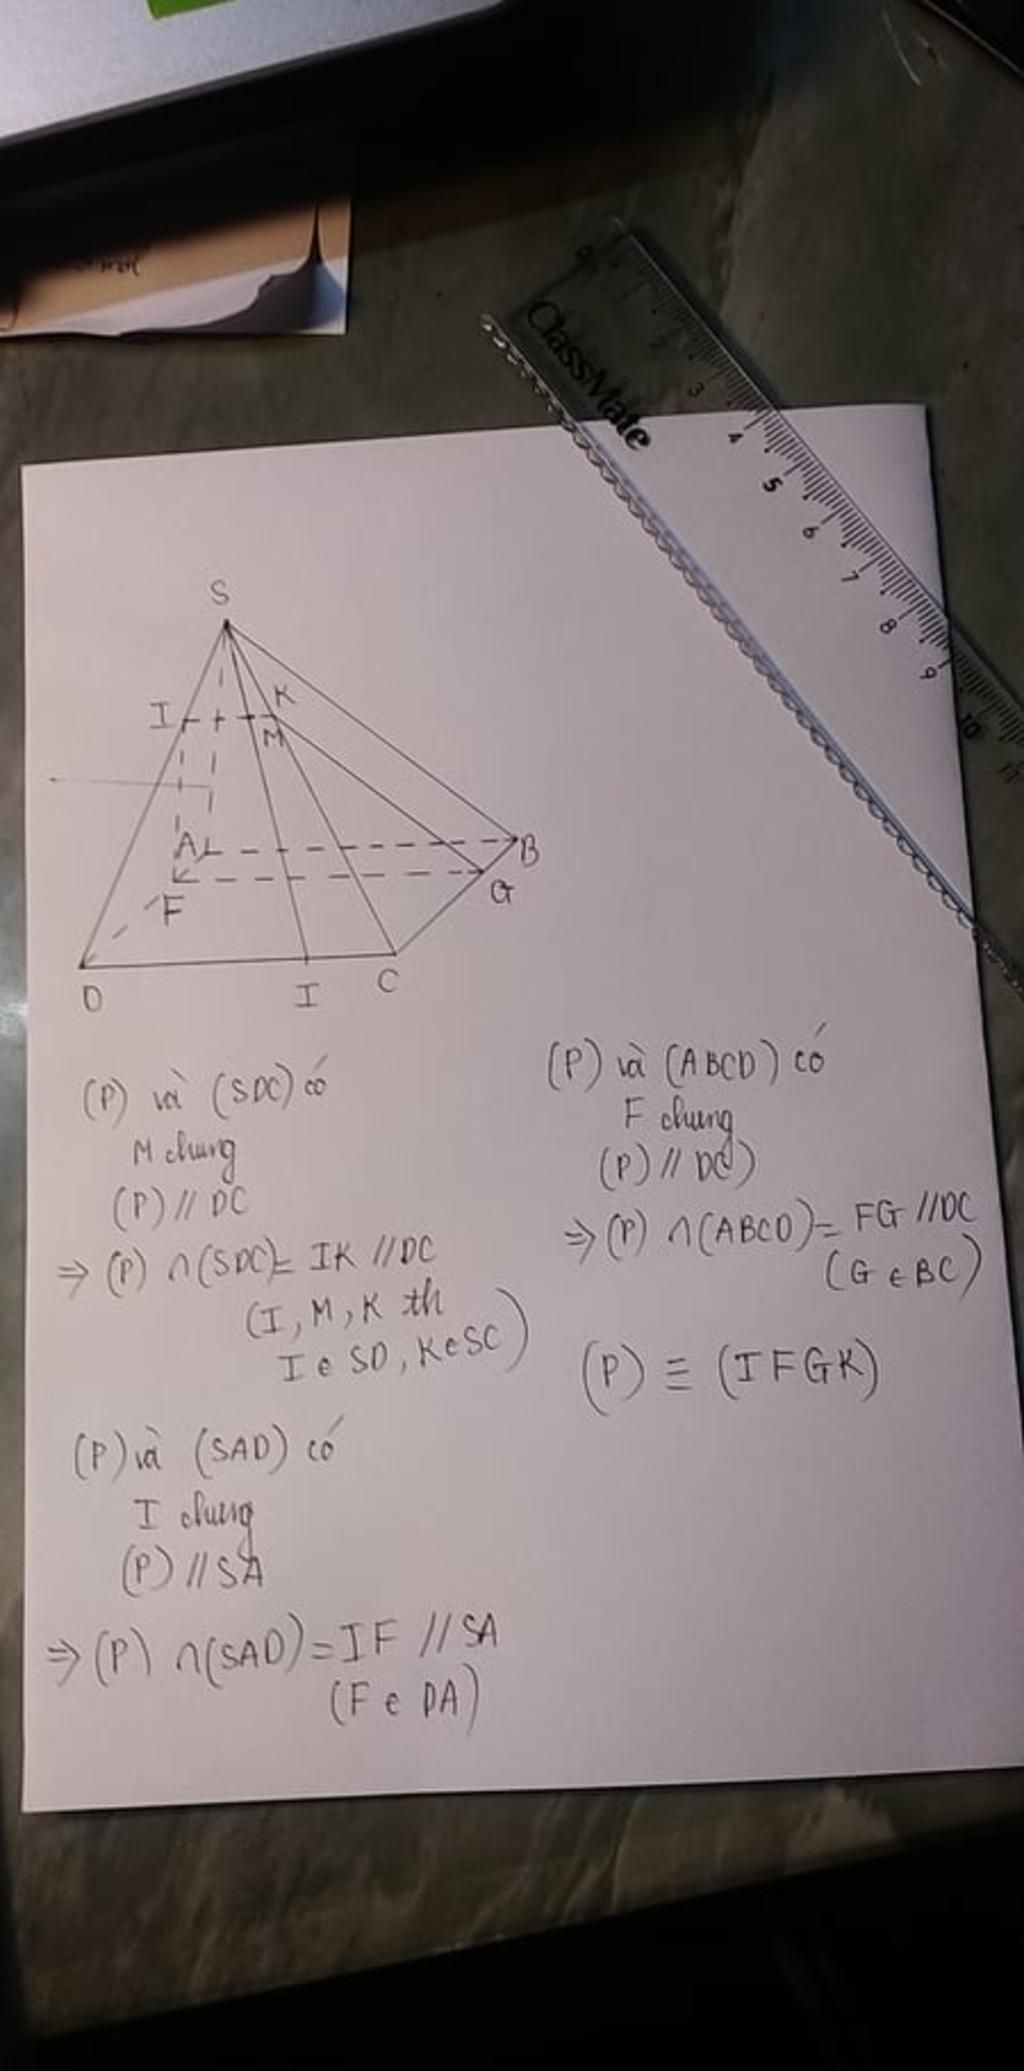 ClassMate
0
2
3
4
5
6
7
8
9
10
11
S
I
K
M
A
B
F
G
D
I
C
(P) và (SDC) có
M chung
(P) // DC
⇒ (P) ∩ (SDC) = IK // DC
(I, M, K th
I ∈ SD, K ∈ SC)
(P) và (SAD) có
I chung
(P) // SA
⇒ (P) ∩ (SAD) = IF // SA
(F ∈ DA)
(P) và (ABCD) có
F chung
(P) // DC)
⇒ (P) ∩ (ABCD) = FG // DC
(G ∈ BC)
(P) ≡ (IFGK)